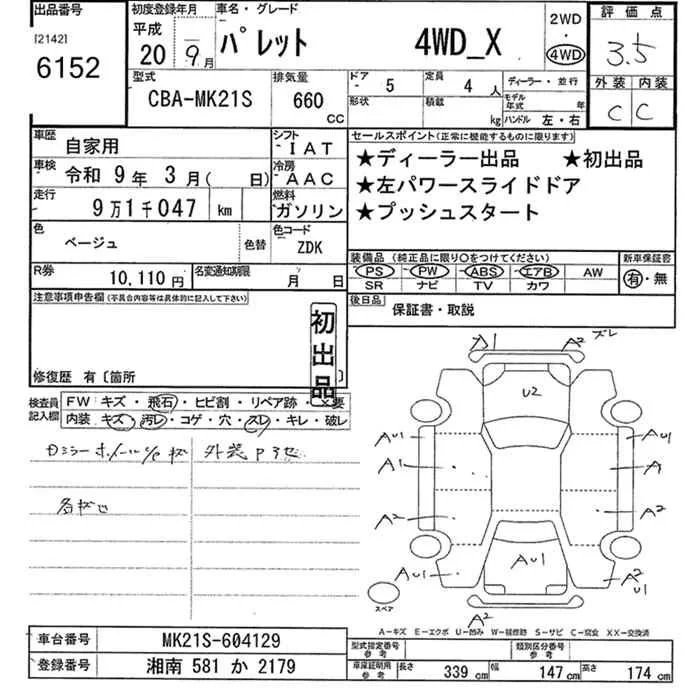 出品番号
[2142]
6152
初度登録年月
平成
20 9月
車名・グレード
パレット 4WD_X
2WD
・
4WD
評価点
3.5
外装 内装
C C
型式
CBA-MK21S
排気量
660
CC
ドア
5
形状
定員
4 人
積載
kg
ディーラー・並行
モデル年式 年
ハンドル 左・右
車歴
自家用
シフト
IAT
車検
令和 9年 3月( 日)
冷房
AAC
走行
9万1千047 km
燃料
ガソリン
色
ベージュ
色替
色コード
ZDK
R券
10,110円
名変通知期限
月 日
セールスポイント(正常に機能するものに限ります)
★ディーラー出品 ★初出品
★左パワースライドドア
★プッシュスタート
装備品 (純正品に限り○をつけてください)
新車保証書
PS PW ABS エアB AW
有・無
SR ナビ TV カワ
後日品
保証書・取説
注意事項申告欄(不具合内容等は具体的に記入して下さい)
初出品
修復歴 有〔箇所 〕
検査員記入欄
FW キズ・飛石・ヒビ割・リペア跡・X要
内装 キズ・汚レ・コゲ・穴・スレ・キレ・破レ
外装
A2 ズレ
U2
AU1 AU1
A1 A
A2 A2
AU1 AU1 A2
U1
A2
スペア
A−キズ E−エクボ U−凹み W−補修跡 S−サビ C−腐食 XX−交換済
車台番号
MK21S-604129
登録番号
湘南 581 か 2179
型式指定番号
参考
類別区分番号
参考
車庫証明用
参考
長さ 339 cm 幅 147 cm 高さ 174 cm